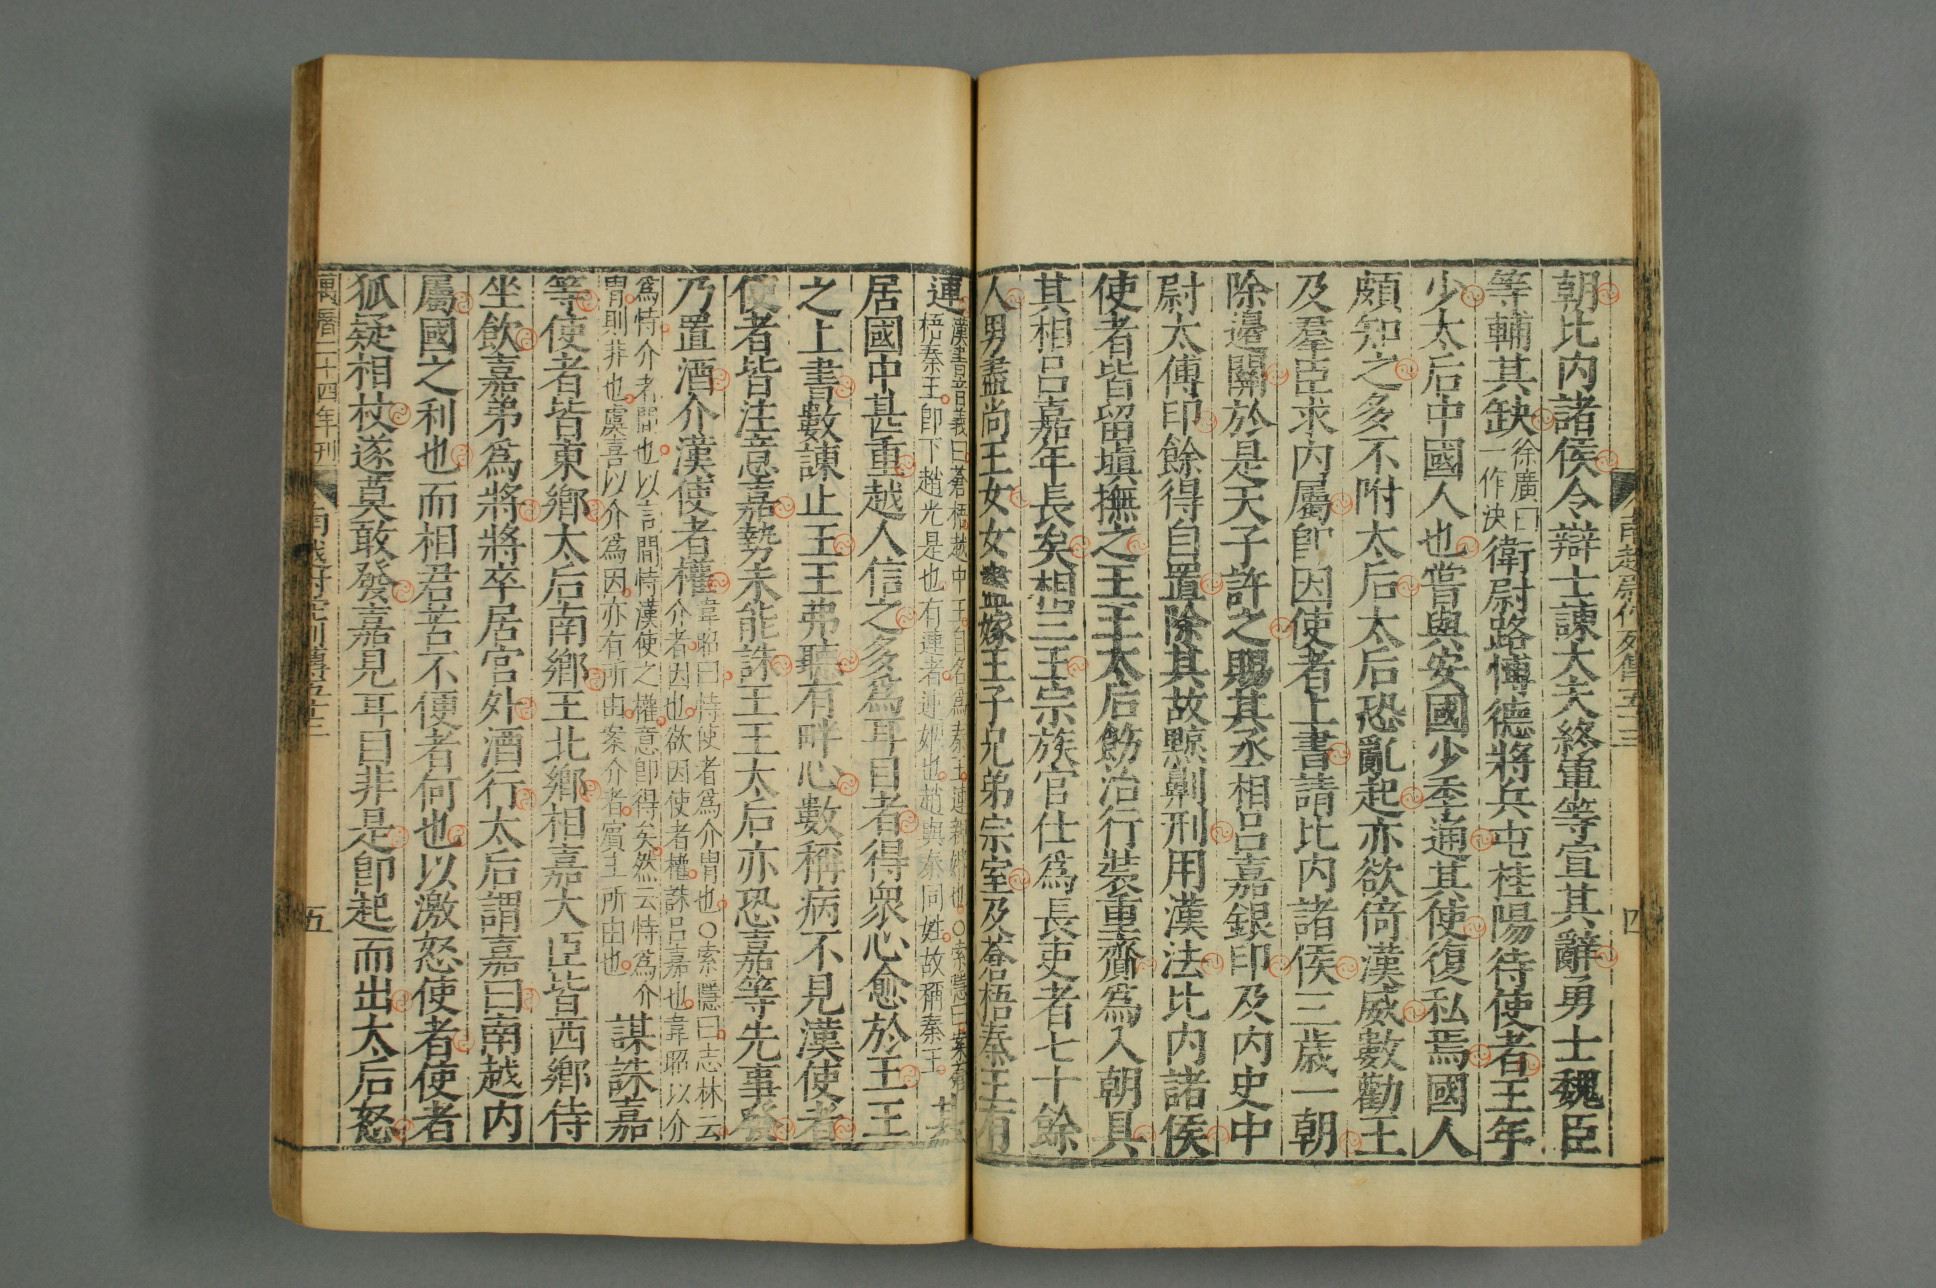 朝比内諸侯令辯士諫大夫終軍等宣其辭勇士魏臣
等輔其缺徐廣曰一作決衛尉路博德將兵屯桂陽待使者王年
少太后中國人也嘗與安國少季通其使復私焉國人
頗知之多不附太后太后恐亂起亦欲倚漢威數勸王
及羣臣求内屬卽因使者上書請比内諸侯三歲一朝
除邊關於是天子許之賜其丞相呂嘉銀印及内史中
尉太傅印餘得自置除其故黥劓刑用漢法比内諸侯
使者皆留塡撫之王王太后飭治行裝重齎爲入朝具
其相呂嘉年長矣相三王宗族官仕爲長吏者七十餘
人男盡尚王女女盡嫁王子兄弟宗室及蒼梧秦王有
連漢書音義曰蒼梧越中王自名爲秦王連親婚也○索隱曰案蒼梧秦王卽下趙光是也有連者連姻也趙與秦同姓故稱秦王其
居國中甚重越人信之多爲耳目者得衆心愈於王王
之上書數諫止王王弗聽有畔心數稱病不見漢使者
使者皆注意嘉勢未能誅王王太后亦恐嘉等先事發
乃置酒介漢使者權韋昭曰恃使者爲介胄也○索隱曰志林云介者因也欲因使者權誅呂嘉也韋昭以介
爲恃介者間也以言間恃漢使之權意卽得矣然云恃爲介胄則非也虞喜以介爲因亦有所由案介者賓主所由也謀誅嘉
等使者皆東鄉太后南鄉王北鄉相嘉大臣皆西鄉侍
坐飲嘉弟爲將將卒居宮外酒行太后謂嘉曰南越内
屬國之利也而相君苦不便者何也以激怒使者使者
狐疑相杖遂莫敢發嘉見耳目非是卽起而出太后怒
萬曆二十四年刊
南越尉佗列傳五十三
五